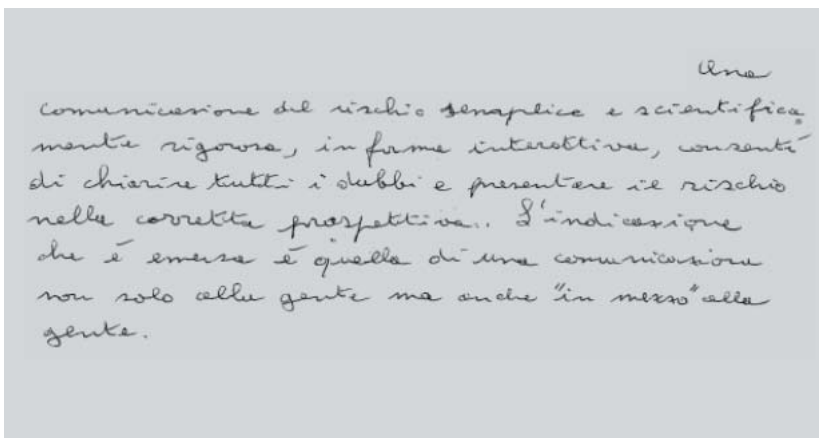 Una
comunicazione del rischio semplice e scientifica
mente rigorosa, in forma interattiva, consentì
di chiarire tutti i dubbi e presentare il rischio
nella corretta prospettiva. L'indicazione
che è emersa è quella di una comunicazione
non solo alla gente ma anche "in mezzo" alla
gente.